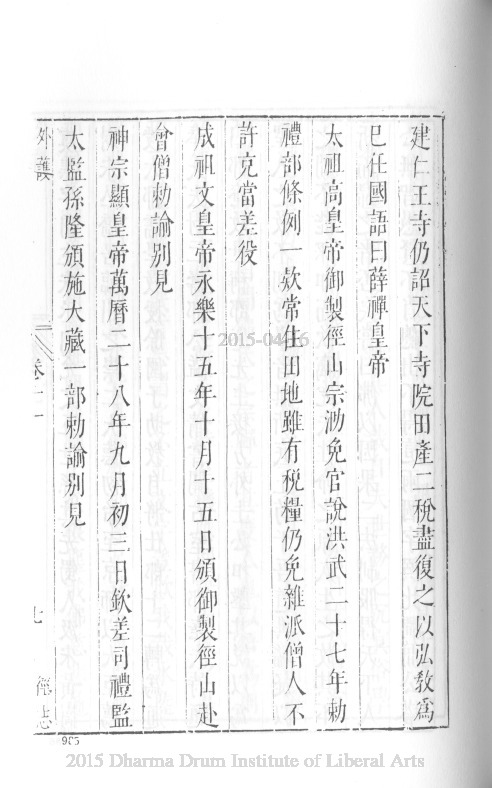 建仁王寺仍詔天下寺院田產二稅盡復之以弘教為
巳任國語曰薛禪皇帝
太祖高皇帝御製徑山宗泐免官說洪武二十七年勅
禮部條例一欵常住田地雖有稅糧仍免雜派僧人不
許充當差役
成祖文皇帝永樂十五年十月十五日頒御製徑山赴
會僧勅諭別見
神宗顯皇帝萬曆二十八年九月初三日欽差司禮監
太監孫隆頒施大藏一部勅諭別見
外護
卷二
七
徑志
965
2015 Dharma Drum Institute of Liberal Arts